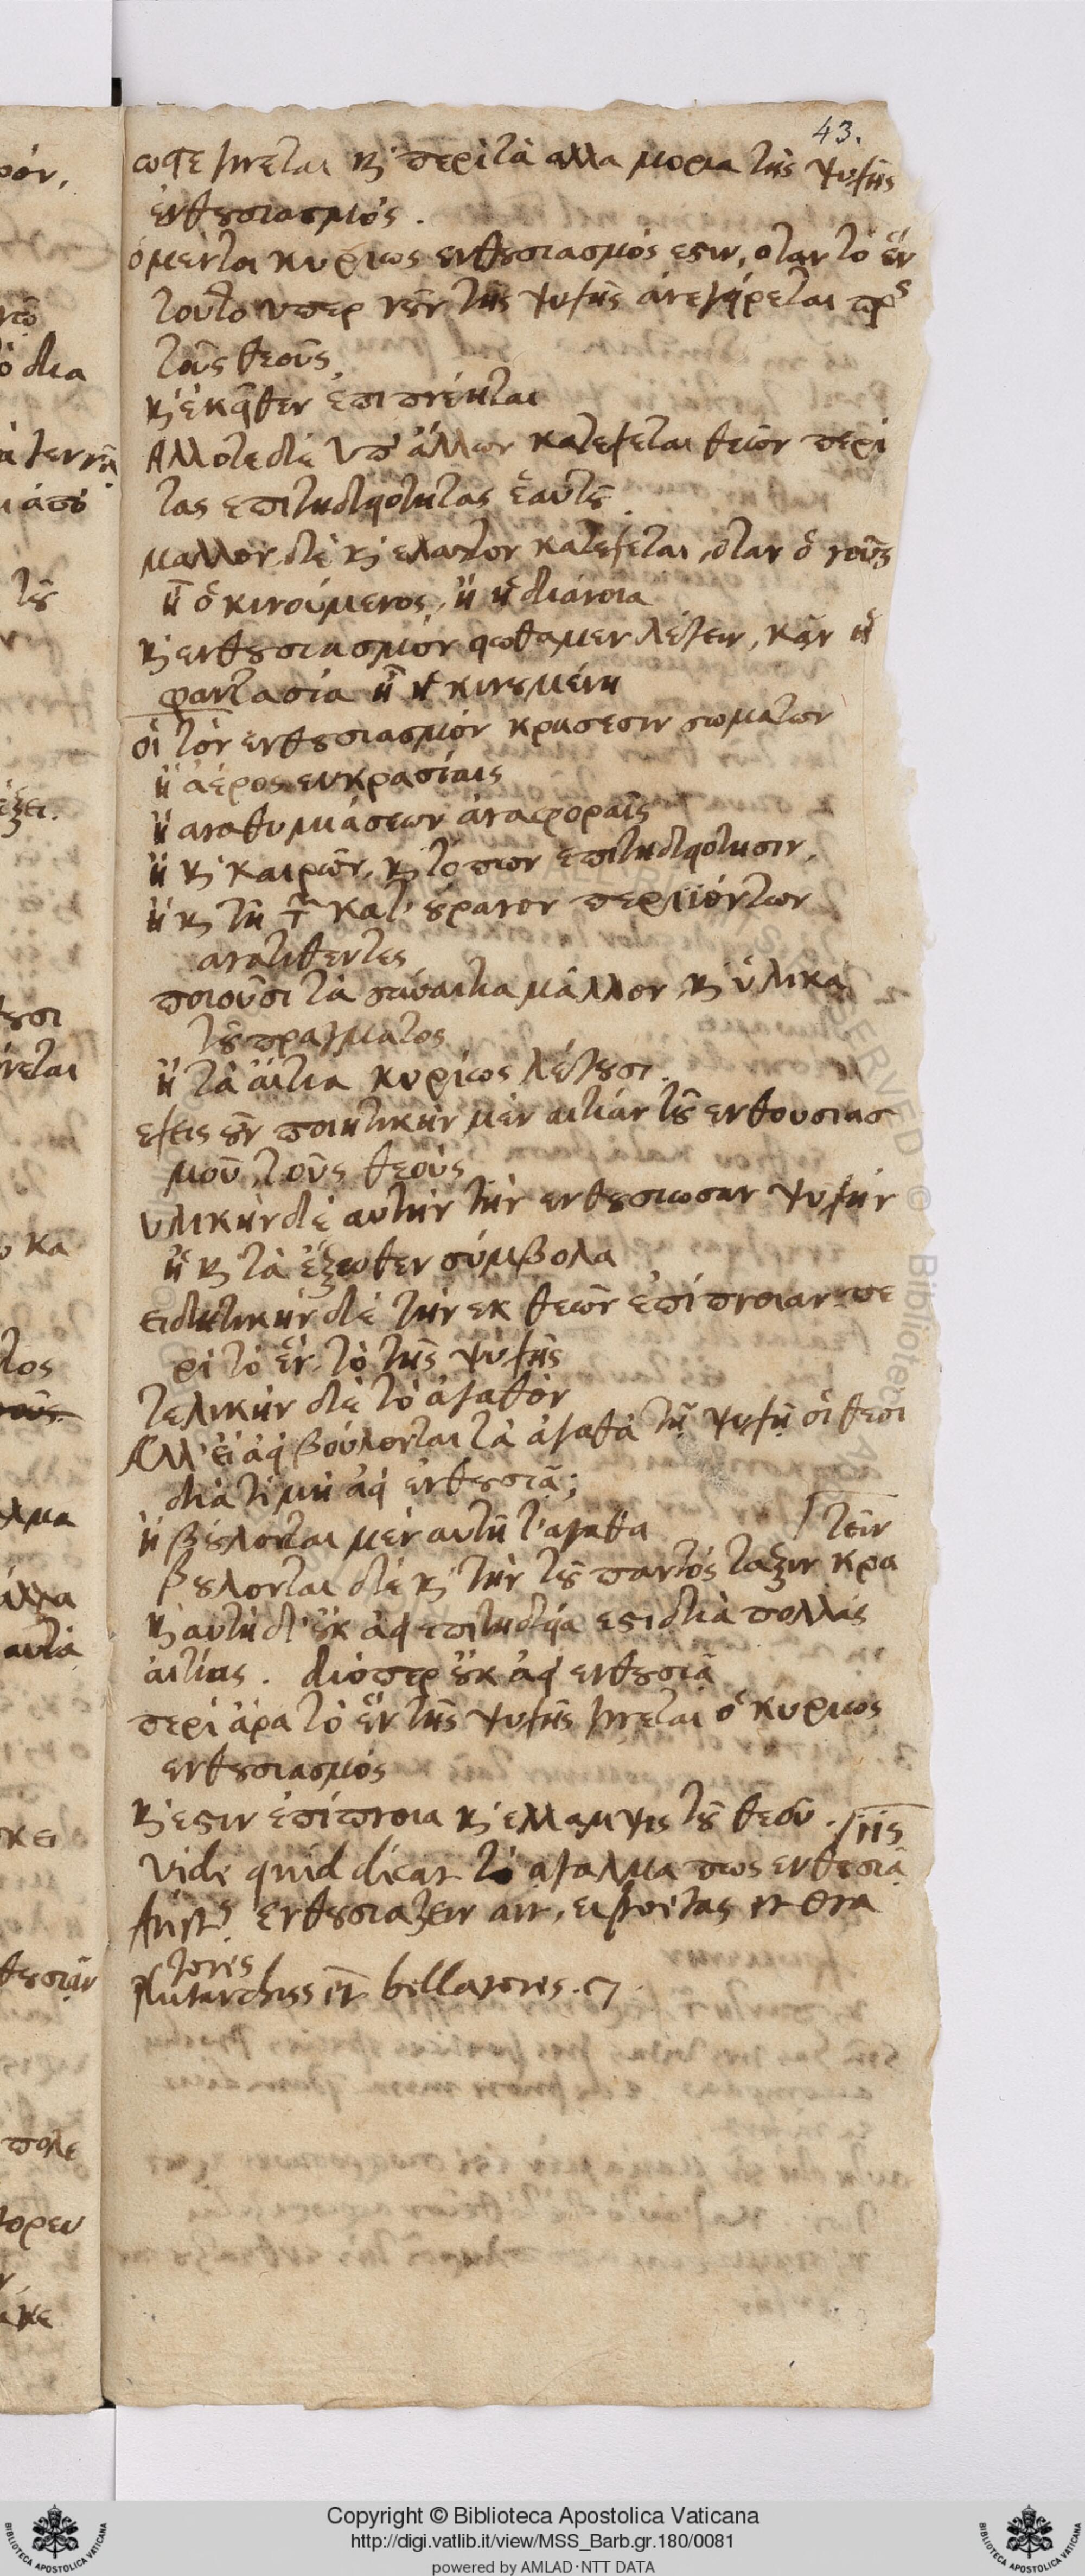 43.
ωςτε γίνεται κ̀ περὶ τὰ αλλα μορια της ψυχῆς
ἐνθȣσιασμός .
ὁ μέντοι κυρίως ενθȣσιασμός εςιν, οταν το ἓν
τουτο υπερ νȣ͂ν της ψυχῆς ἀνεγείρεται πρς
τοὺς θεοὺς
κ̀ ἐκεῖθεν ἐπιπνέηται
Αλλοτε δὲ ὑπ' ἄλλων κατέχεται θεων περὶ
τας επιτηδειοτητας ἑαυτȣ͂
μαλλον δὲ κ̀ ελαττον κατέχεται, οταν ὁ νοῦς
ἦ ὁ κινούμενος, ἢ ἡ διάνοια
κ̀ ενθȣσιασμὸν εἰωθαμεν λέγειν, κἂν ἡ
φαντασία ἦ ἡ κινȣμένη
οἱ τὸν ενθȣσιασμὸν κρασεσιν σωματων
ἢ ἀέρος ευκρασίαις
ἢ αναθυμιάσεων ἀναφοραῖς
ἢ κ̀ καιρῶν, κ̀ τοπων επιτηδειοτησιν,
ἢ κ̀ τῆ τ͂ κατ' ȣρανον περιϊόντων
ανατιθεντες
ποιοῦσι τὰ συναιτια μᾶλλον, κ̀ ὑλικὰ
τȣ͂ πραγματος
ἢ τὰ ἄιτια κυρίως λέγȣσι .
εχεις ȣν ποιητικὴν μὲν αιτιὰν τȣ͂ ενθουσιασ
μοῦ, τοὺς θεοὺς
υλικὴν δὲ αυτὴν τὴν ενθȣσιωσαν ψυχὴν
ἢ κ̀ τὰ ἔξωθεν σύμβολα
ειδητικὴν δὲ τὴν εκ θεῶν ἐπίπνοιαν πε
ρὶ τὸ ἓν τὸ τῆς ψυχῆς
τελικὴν δὲ τὸ ἀγαθὸν
Αλλ' εἰ ἀεὶ βούλονται τὰ ἀγαθὰ τῇ ψυχῇ οἱ θεοὶ
διὰ τί μὴ ἀεὶ ἐνθȣσιᾶ;
ἢ βȣ́λονται μὲν αυτῆ τ'αγαθα
τεῖν
βȣλονται δὲ κ̀ τὴν τȣ͂ παντὸς ταξιν κρα
κ̀ αυτὴ δ' ȣ̓κ ἀεὶ επιτηδεία εςι διὰ πολλὰς
ἀιτίας . διόπερ ȣ̓κ ἀεὶ ενθȣσιᾶ
περὶ ἀρα τὸ ἓν τῆς ψυχῆς γίνεται ὁ κυριως
ενθȣσιασμός
κ̀ εςιν ἐπίπνοια κ̀ ελλαμψις τȣ͂ θεοῦ .
Vide quid dicat τὸ αγαλμα πως ενθȣσιᾶ
ενθȣσιαζειν
tores
Plutarchus et bellatores.
Copyright © Biblioteca Apostolica Vaticana
http://digi.vatlib.it/view/MSS_Barb.gr.180/0081
powered by AMLAD·NTT DATA